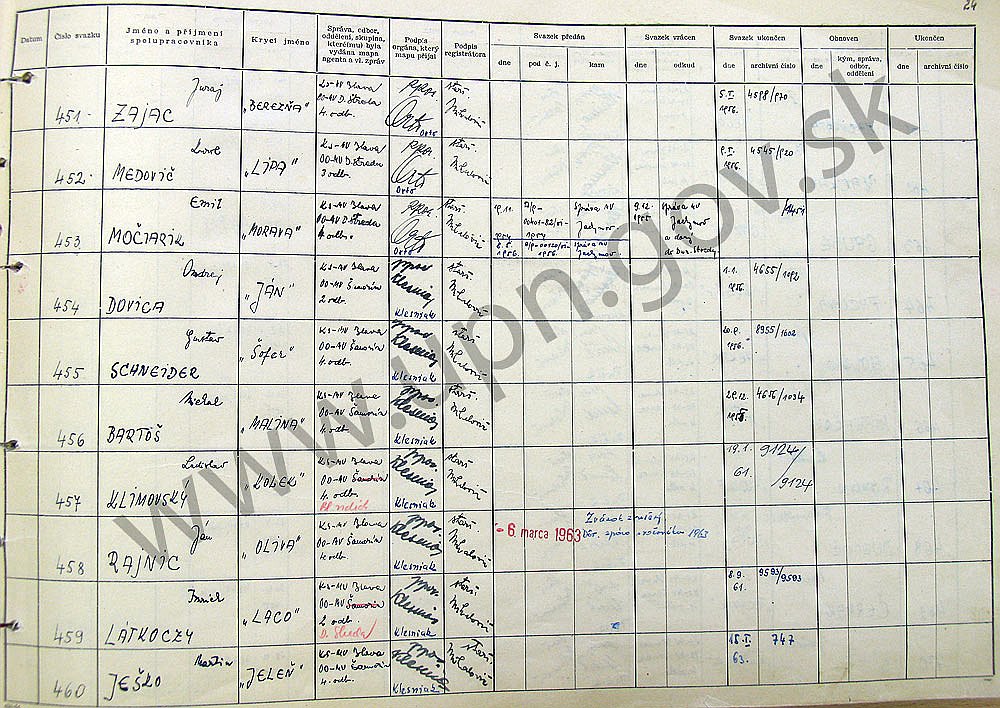 24
Datum
Číslo svazku
Jméno a příjmení
spolupracovníka
Krycí jméno
Správa, odbor,
oddělení, skupina,
které(mu) byla
vydána mapa
agenta a vl. zpráv
Podpis
orgána, který
mapu přijal
Podpis
registrátora
Svazek předán
dne
pod č. j.
kam
Svazek vrácen
dne
odkud
Svazek ukončen
dne
archivní číslo
Obnoven
kým, správa,
odbor,
oddělení
Ukončen
dne
archivní číslo
Juraj
451 ZAJAC „BEREZŇA"
KS-MV Blava
OO-MV D. Streda
4. odb.
Orto
5. I.
1956.
4598/920
452 MEDOVIČ „LIPA"
KS-MV Blava
OO-MV D. Streda
3 odb.
Orto
9. I.
1956.
4545/920
Emil
453 MOČIARIK „MORAVA"
KS-MV Blava
OO-MV D. Streda
4. odb.
Orto
9.11.
1954
8. 5.
1956.
Správa MV
Jáchymov
9.12.
1955
Správa MV
Ondrej
454 DOVICA „JÁN"
KS-MV Blava
OO-MV Šamorín
2 odb.
Klesniak
1.1.
1956.
4655/1092
Gustav
455 SCHNEIDER „Šofer"
KS-MV Blava
OO-MV Šamorín
4. odb.
Klesniak
1956.
8955/1602
Michal
456 BARTOŠ „MALINA"
KS-MV Blava
OO-MV Šamorín
4. odb.
Klesniak
29.12.
4656/1034
Ladislav
457 KLIMOVSKÝ „KOLEK"
KS-MV Blava
OO-MV Šamorín
4. odb.
Klesniak
19.1.
61.
9124/
9124
Ján
458 RAJNIC „OLIVA"
KS-MV Blava
OO-MV Šamorín
4. odb.
Klesniak
- 6. marca 1963
Zväzok zničený
1963
Imrich
459 LÁTKOCZY „LACO"
KS-MV Blava
OO-MV Šamorín
2 odb.
D. Streda
Klesniak
8.9.
61.
9593/9593
Martin
460 JEŠKO „JELEŇ"
KS-MV Blava
OO-MV Šamorín
4. odb.
Klesniak
15. I.
63.
747
www.upn.gov.sk